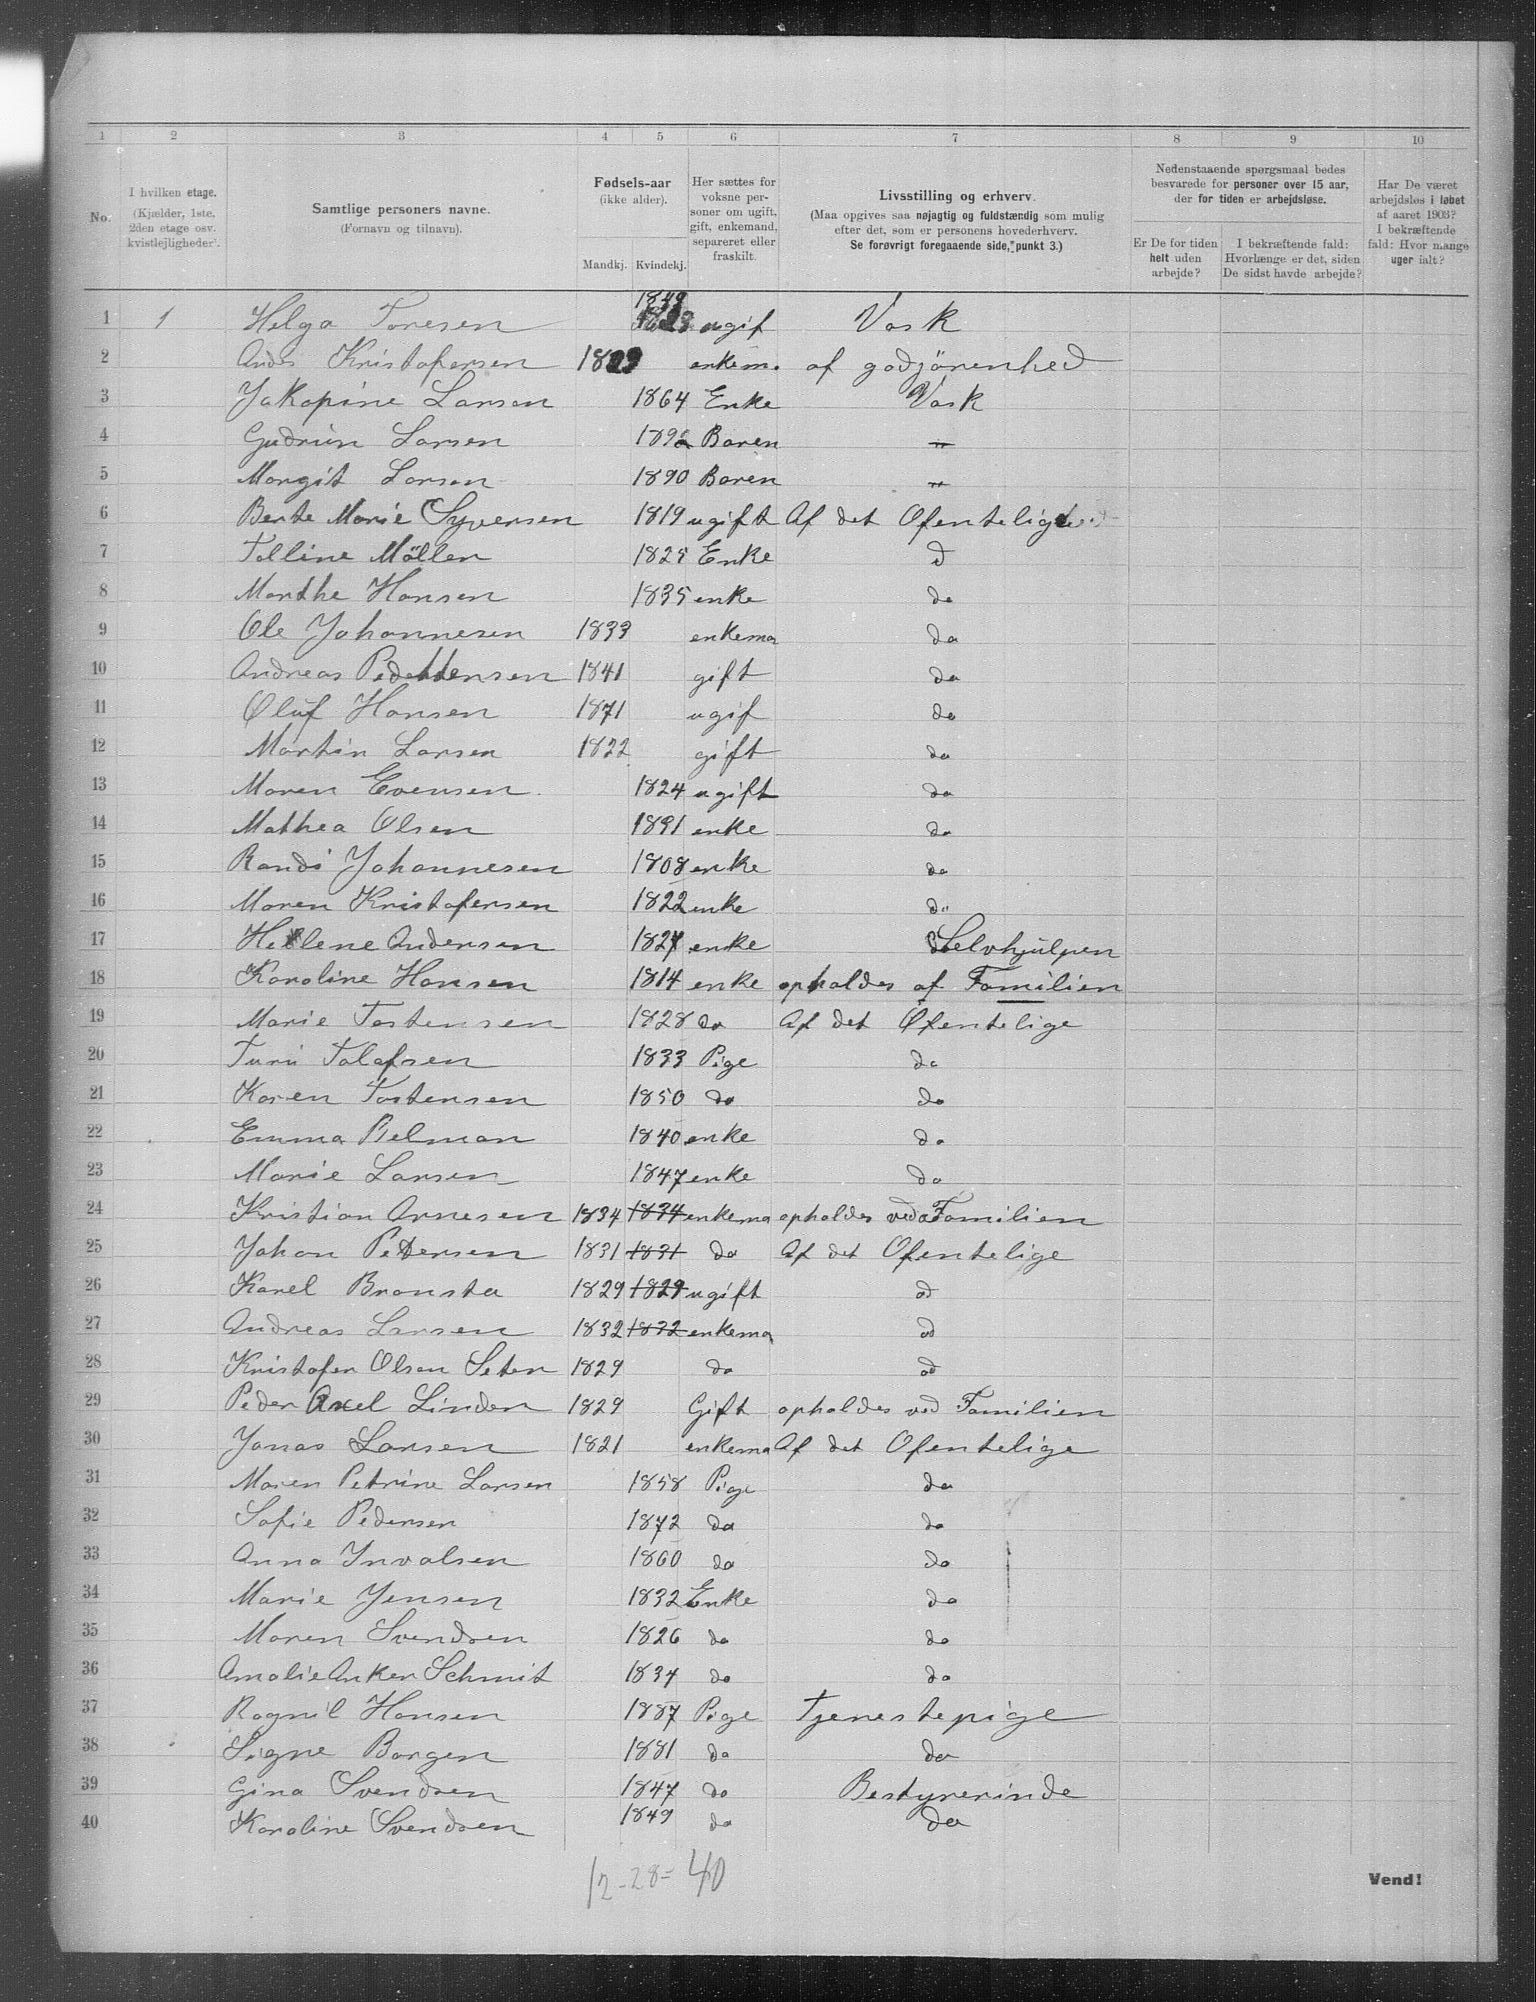 1 2 3 4 5 6 7 8 9 10
No. I hvilken etage. (Kjælder, 1ste, 2den etage osv. kvistlejligheder). Samtlige personers navne. (Fornavn og tilnavn). Fødsels-aar (ikke alder). Mandkj. Kvindekj. Her sættes for voksne personer om ugift, gift, enkemand, separeret eller fraskilt. Livsstilling og erhverv. (Maa opgives saa nøjagtig og fuldstændig som mulig efter det, som er personens hovederhverv. Se forøvrigt foregaaende side, punkt 3.) Nedenstaaende spørgsmaal bedes besvarede for personer over 15 aar, der for tiden er arbejdsløse. Er De for tiden helt uden arbejde? I bekræftende fald: Hvorlænge er det, siden De sidst havde arbejde? Har De været arbejdsløs i løbet af aaret 1903? I bekræftende fald: Hvor mange uger ialt?
1 1 Helga Toresen 1849 ugif Vask
2 Kristofersen enkem. af godjörenhed
3 Jakopine Larsen 1864 Enke Vask
4 Gudrun Larsen Baren "
5 Margit Larsen 1890 Baren "
6 Berte Marie Syversen 1819 ugift Af det Ofentelig
7 Tolline Möllen 1825 Enke d
8 Marthe Hansen 1835 enke do
9 Ole Johannesen 1833 enkema do
10 Andreas 1841 gift do
11 Oluf Hansen 1871 ugif do
12 Martin Larsen 1822 gift do
13 Maren Evensen 1824 ugift do
14 Mathea Olsen 1891 enke do
15 Randi Johannesen 1808 enke do
16 Maren Kristofersen 1822 enke do
17 Hellene Andersen 1827 enke Selvhjulpen
18 Karoline Hansen 1814 enke opholdes af Familien
19 Marie Tostensen 1828 do Af det Ofentelige
20 Turi Tolofsen 1833 Pige do
21 Karen Tostensen 1850 do do
22 Emma Pelman 1840 enke do
23 Marie Larsen 1847 enke do
24 Kristian Arnesen 1834 1834 enkema opholdes ved Familien
25 Johan Petersen 1831 1831 do Af det Ofentelige
26 Karel Bronsta 1829 1829 ugift od
27 Andreas Larsen 1832 1832 enkema od
28 Kristofer Olsen Seter 1829 do od
29 Peder Axel Linden 1829 Gift opholdes ved Familien
30 Jonas Larsen 1821 enkema Af det Ofentelige
31 Maren Petrine Larsen 1858 Pige do
32 Sofie Pedersen 1872 do do
33 Anna Invalsen 1860 do do
34 Marie Jensen 1832 Enke do
35 Maren Svendsen 1826 do do
36 Amalie Anker Schmit 1834 do do
37 Ragnil Hansen 1887 Pige Tjenestepige
38 Signe Borgen 1881 do do
39 Gina Svendsen 1847 do Bestyrerinde
40 Karoline Svendsen 1849 do do
12-28=40
Vend!